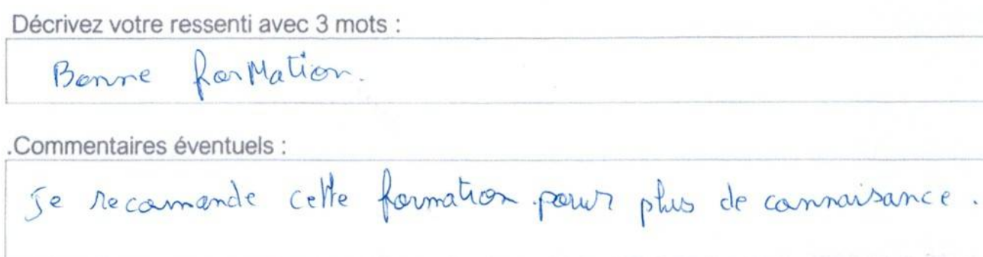 Décrivez votre ressenti avec 3 mots :
Bonne forMation.
.Commentaires éventuels :
Je recomande cette formation pour plus de connaisance.